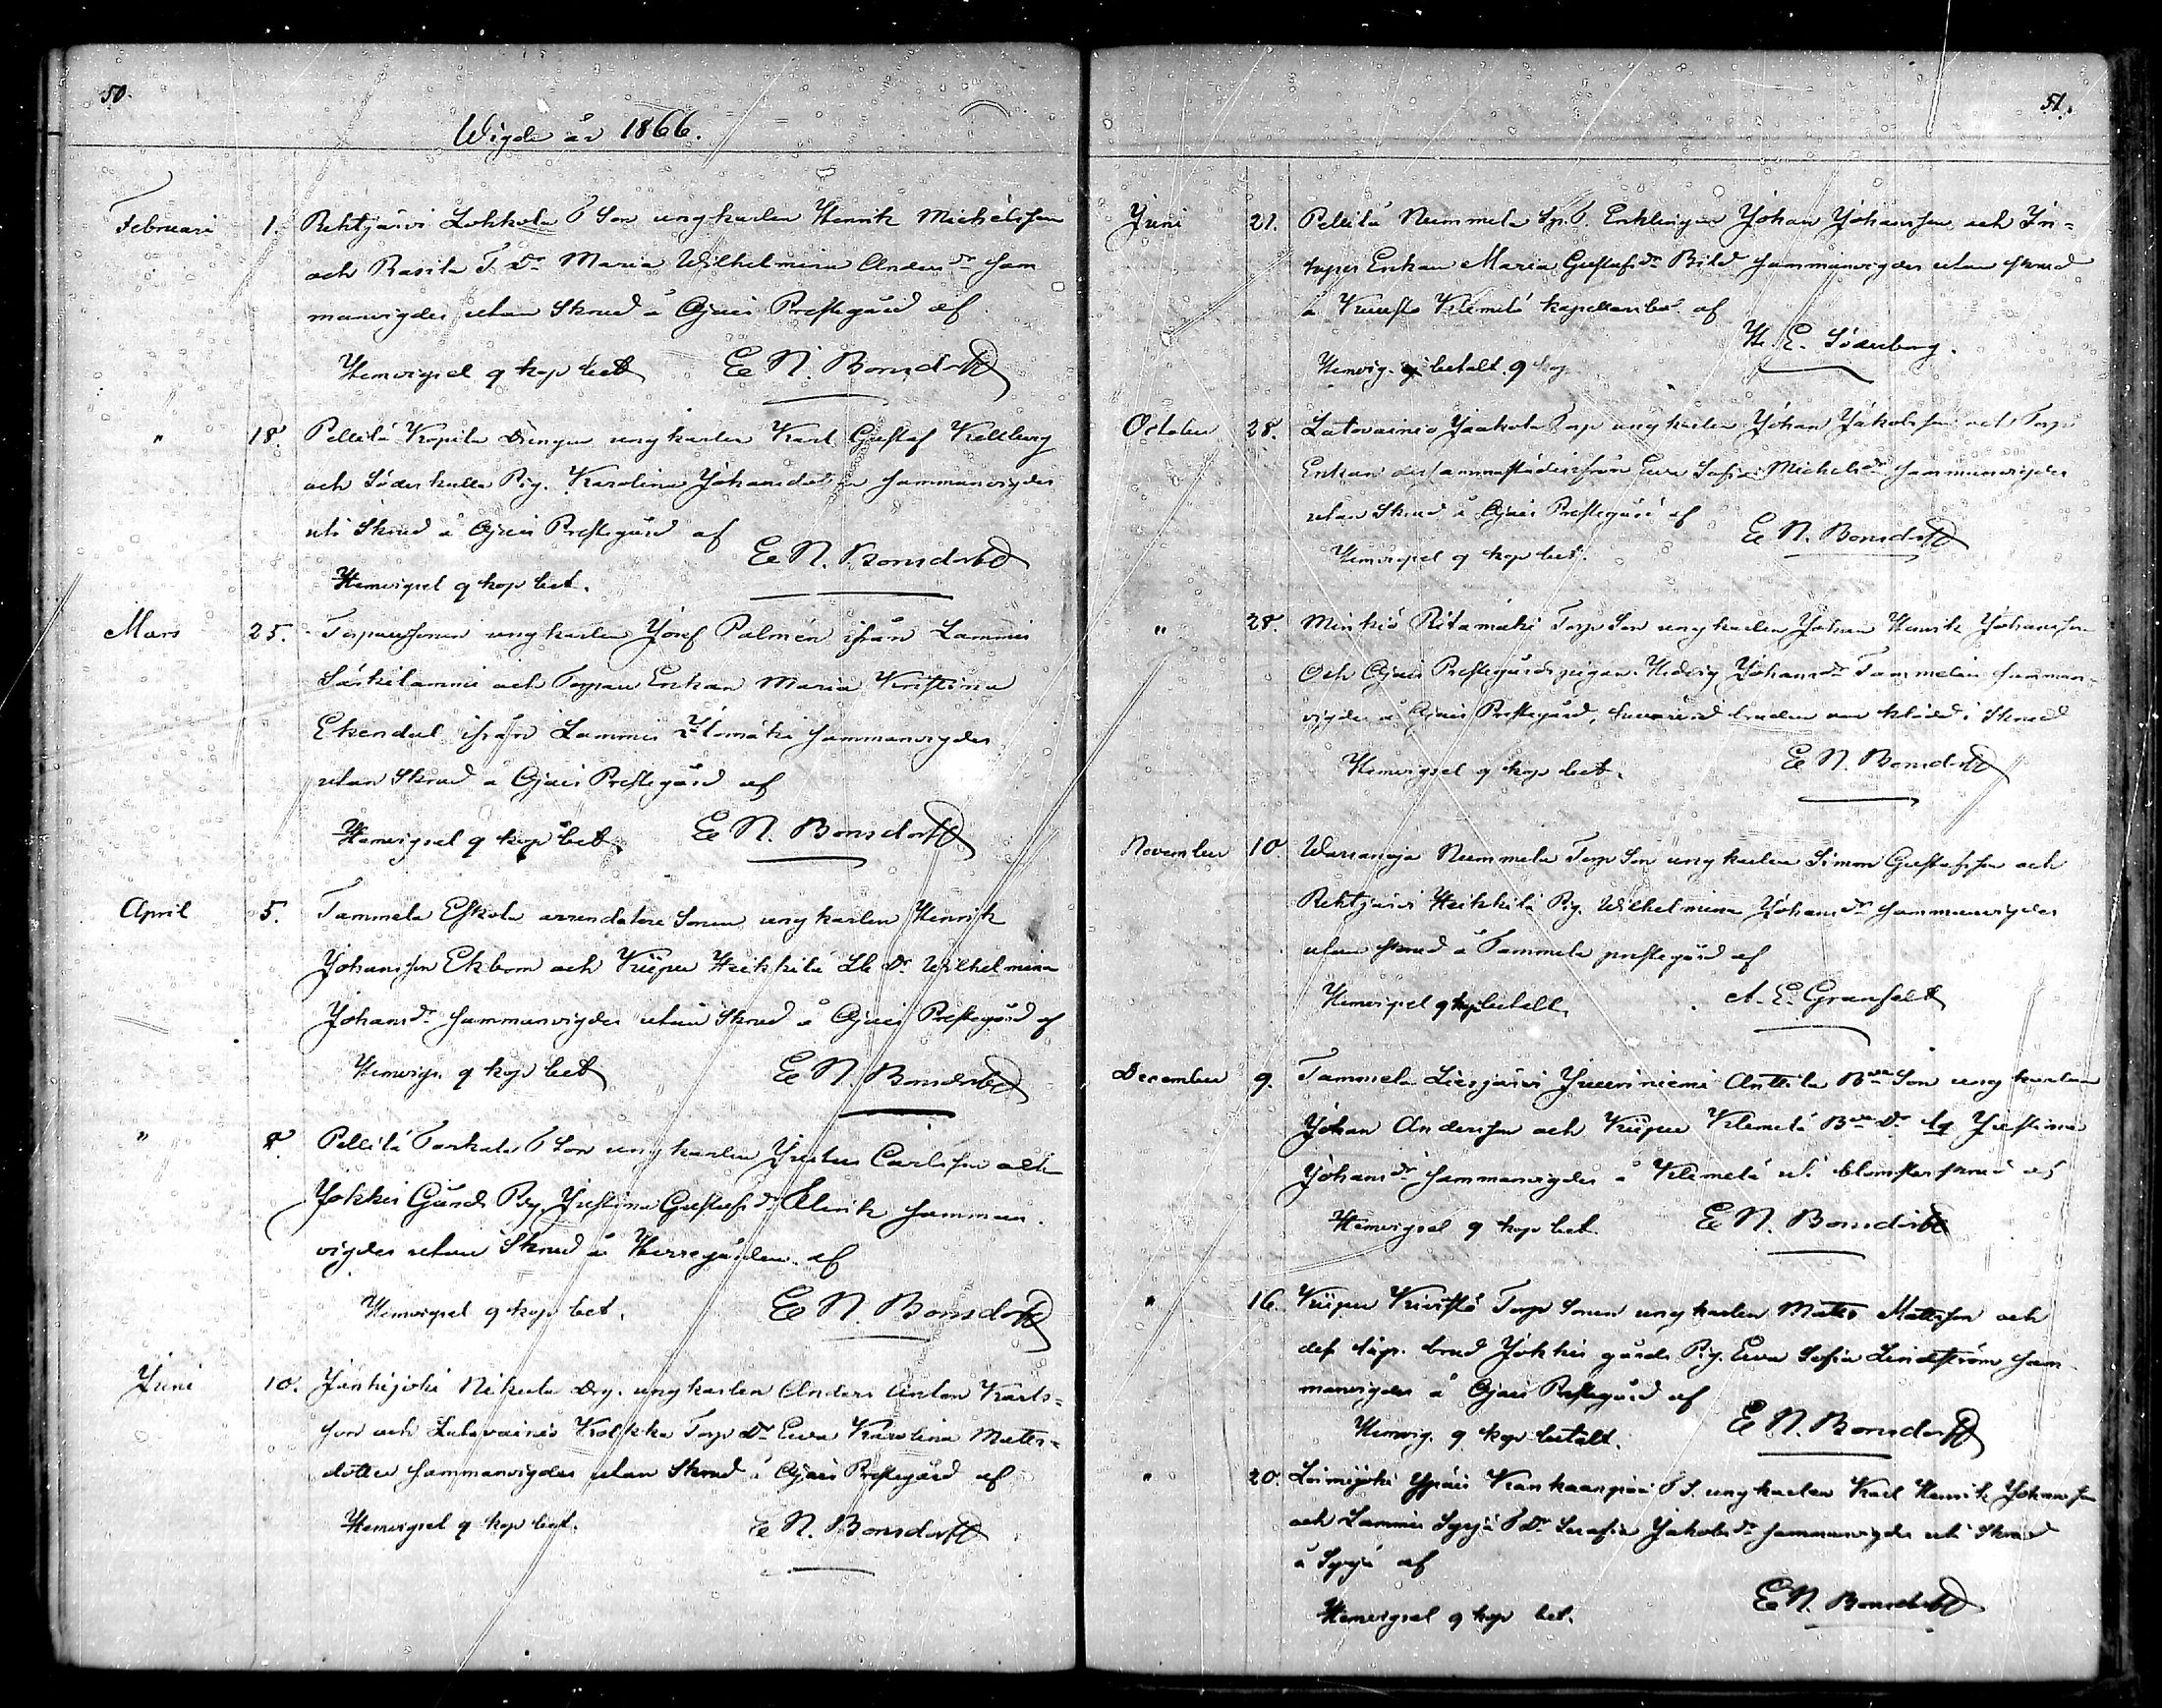 50.
Wigde år 1866.
Februari 1. Rehtijärvi Lokkola T Son ungkarlen Henrik Michelsson
och Rasila T. Dr Maria Wilhelmina Andersdr sam
manvigdes utan Skrud å Ojais Prestegård af
Hemvigsel 9 kop bet E N. Bonsdorff
" 18. Pellilä Kopila Drengen ungkarlen Karl Gustaf Kellberg
och Söderkulla Pig. Karolina Johansdotter sammanvigdes
uti Skrud å Ojais Prestegård af
E N. Bonsdorff
Hemvigsel 9 kop bet.
Mars 25. Torparesonen ungkarlen Josef Palmén ifrån Lammi
Särkilammi och Torpare Enkan Maria Kristina
Ekendal ifrån Lammi Ylömäki sammanvigdes
utan Skrud å Ojais Prestegård af
Hemvigsel 9 kop bet. E N. Bonsdorff
April 5. Tammela Eskola arrendatore Sonen ungkarlen Henrik
Johansson Ekbom och Kiipu Heikkilä Dr Wilhelmina
Johansdr sammanvigdes utan Skrud å Ojais Prestegård af
Hemvigs. 9 kop bet E N. Bonsdorff
" 8. Pellilä T Son ungkarlen Justus Carlsson och
Jokkis Gårds Pig. Justina Gustafsdr Ulrik samman-
vigdes utan Skrud å Herregården af
Hemvigsel 9 kop bet. E N. Bonsdorff
Juni 10. Jänhijoki Nikula Drg. ungkarlen Anders Anton Karls-
son och Latovainio Kolkka Torp Dr Eva Karolina Mats-
dotter sammanvigdes utan Skrud å Ojais Prestegård af
Hemvigsel 9 kop bet. E N. Bonsdorff
51.
Juni 21. Pellilä Nummela Enklingen Johan Johansson och In-
hyses Enkan Maria Gustafsdr Bild sammanvigdes utan skrud
å Klemelä af
H. E. Söderberg.
Hemvig. betalt. 9 kop
October 28. Latovainio Jaakola Torp ungkarlen Johan Jakobsson och Torp
Enkan dersammastädes ifrån Eva Sofia Michelsdr sammanvigdes
utan Skrud å Ojais Prestegård af
E N. Bonsdorff
Hemvigsel 9 kop bet.
" 28. Minkiö Ritamäki Torp Son ungkarlen Johan Henrik Johansson
Och Ojais Prestegårdspigan Hedvig Johansdr Tammelin samman-
vigdes å Ojais Prestegård, hvarvid bruden var klädd i Skrud
E N. Bonsdorff
Hemvigsel 9 kop bet.
November 10. Warsanoja Nummela Torp Son ungkarlen Simon Gustafsson och
Rehtijärvi Heikkilä Pig. Wilhelmina Johansdr sammanvigdes
utan skrud å Tammela prestegård af
Hemvigsel 9 kop betalt. A. E. Granfelt
December 9. Tammela Liesjärvi Juuriniemi Anttila Son ungkarlen
Johan Andersson och Kiipu Klemelä Dr Justina
Johansdr sammanvigdes å Klemelä uti blomsterskrud af
Hemvigsel 9 kop bet. E N. Bonsdorff
" 16. Kiipu Kivistö Torp Sonen ungkarlen Matts Mattsson och
dess brud Jokkis gårds Pig. Eva Sofia Lindström sam-
manvigdes å Ojais Prestegård af
Hemvig. 9 kop betalt. E N. Bonsdorff
" 20. Loimijoki Ypäis Kankaanpää T S. ungkarlen Karl Henrik Johansson
och Lammi Syrjä T Dr Serafia Jakobsdr sammanvigdes uti Skrud
å Syrjä af
E N. Bonsdorff
Hemvigsel 9 kop bet.